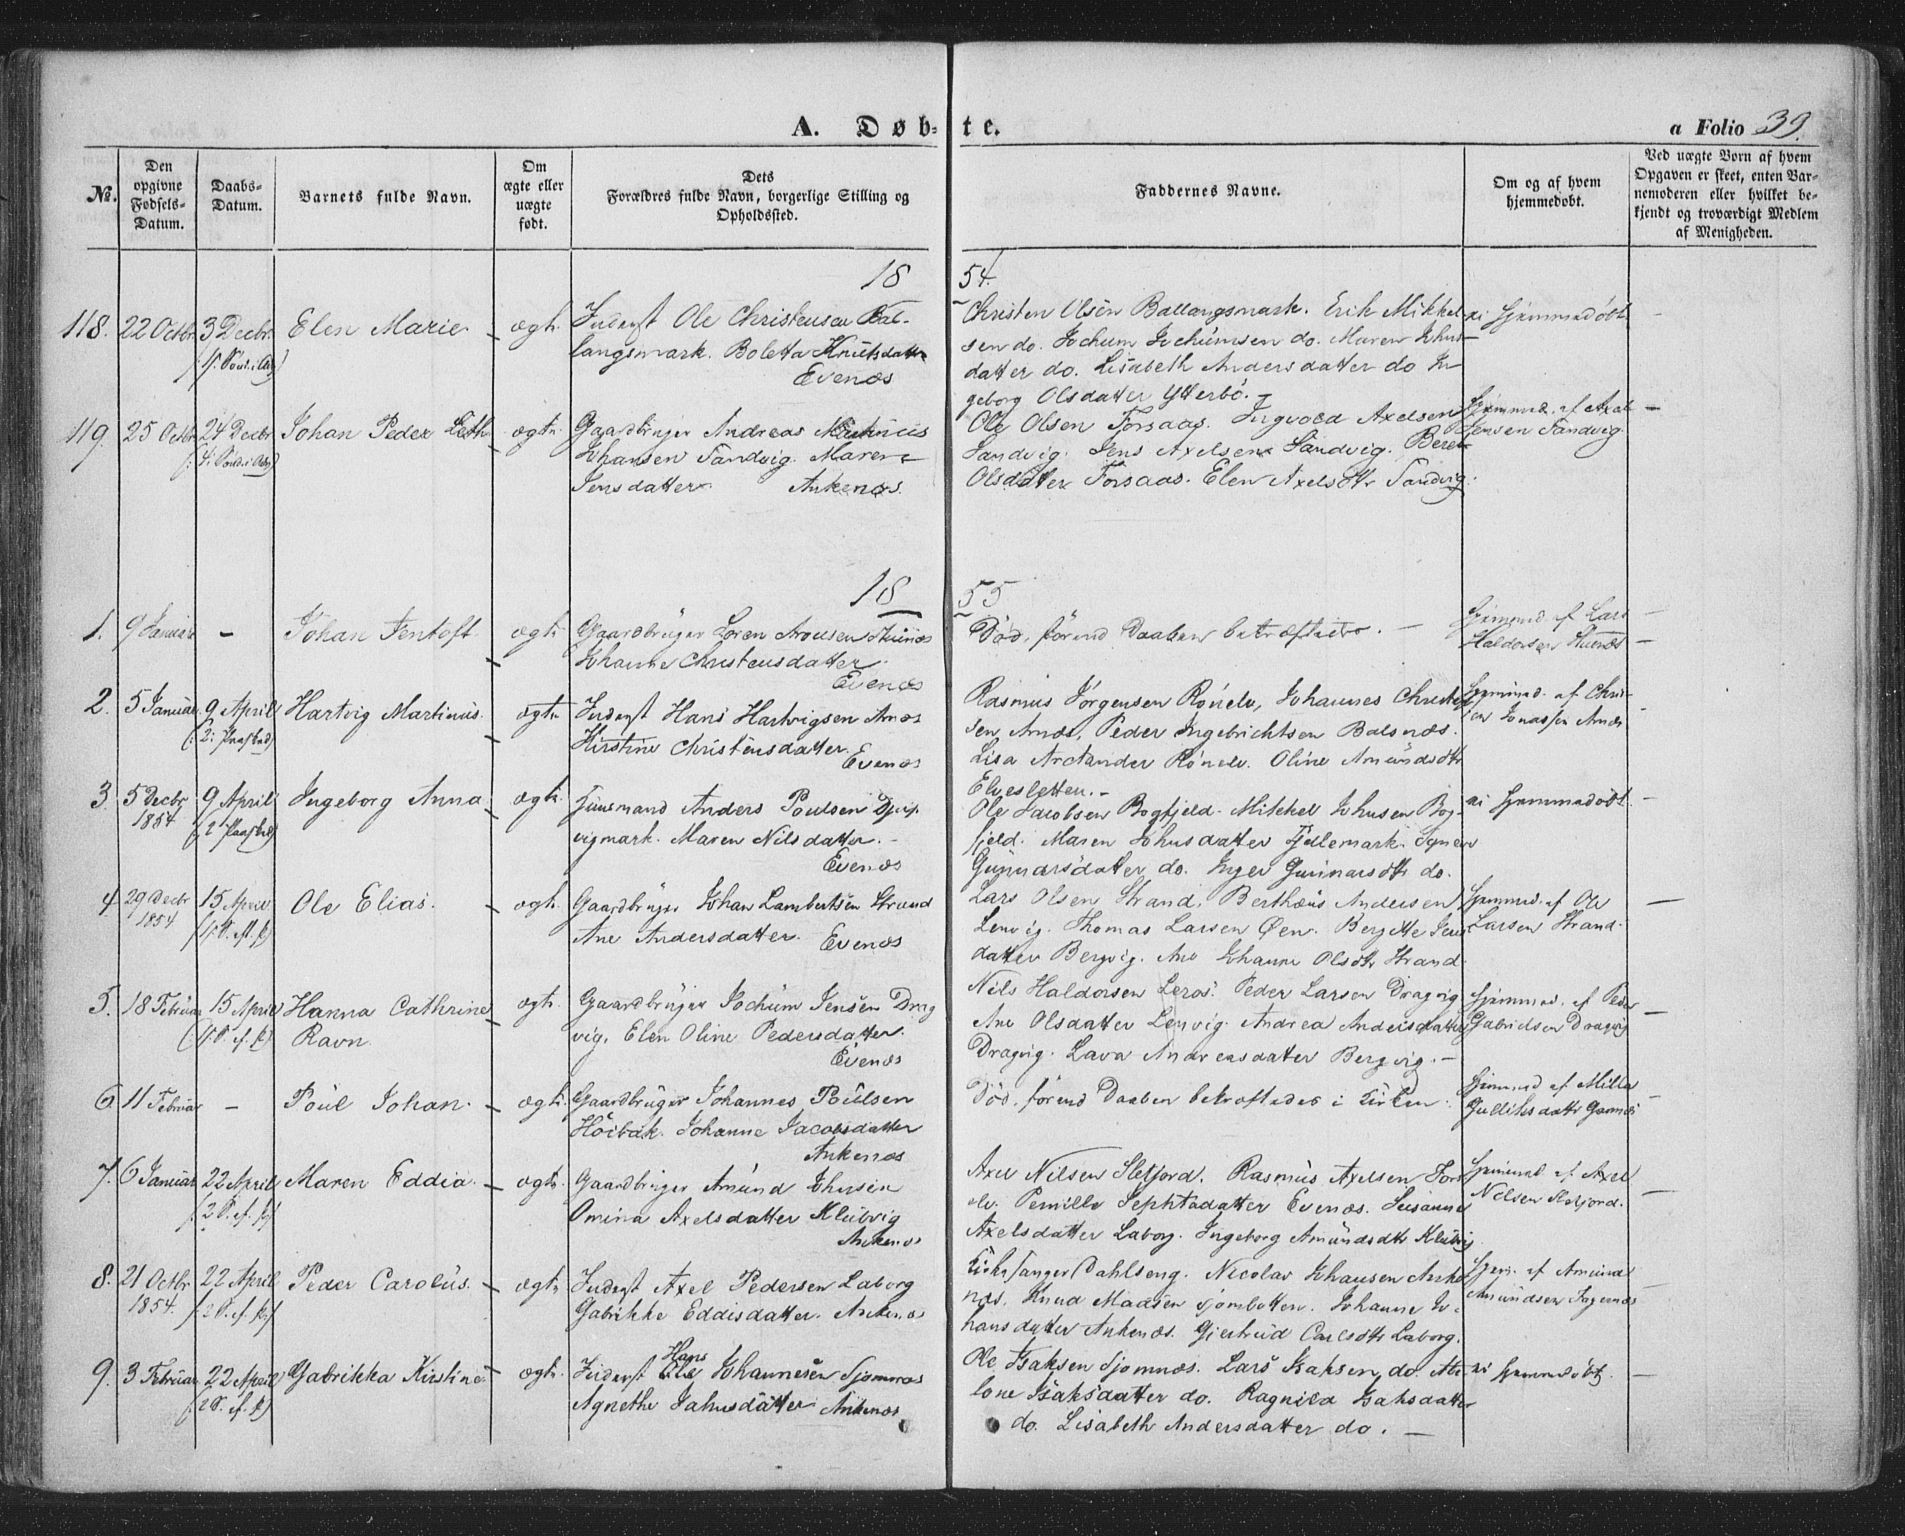 A. Døb- te.
a Folio 39.
№.
Den opgivne Fødsels-Datum.
Daabs-Datum.
Barnets fulde Navn.
Om ægte eller uægte født.
Dets Forældres fulde Navn, borgerlige Stilling og Opholdssted.
Faddernes Navne.
Om og af hvem hjemmedøbt.
Ved uægte Born af hvem Opgaven er skeet, enten Barnemoderen eller hvilket bekjendt og troværdigt Medlem af Menigheden.
18 54.
118. 22 Octbr 3 Decbr. Elen Marie. ægte. Inderst Ole Christensen Bal-
langsmark. Boletta Knutsdatter
Evenæs
Christen Olsen Ballangsmark. Erik Mikkel-
sen do. Jochum Jochumsen do. Maren Johns-
datter do. Lisabeth Andersdatter do In-
geborg Olsdatter Ytterbö.
ei Hjemmedöbt –
119. 25 Octbr 24 Decbr Johan Peder ægte Gaardbruger Andreas
Johansen Sandvig. Maren
Jensdatter. Ankenæs.
Ole Olsen Forsaas. Ingvold Axelsen
Sandvig. Jens Axelsen Sandvig. Beret
Olsdatter Forsaas. Elen Axelsdtr Sandvig.
Hjemmed. af Axel
Jensen Sandvig. –
18 55
1. 9 Januar – Johan Fentoft ægte Gaardbruger Sören Aronsen
Johanna Christensdatter.
Evenæs
Död, förend Daaben bekræftedes. –
Hjemmed. af Lars
Haldorsen –
2. 5 Januar 9 April Hartvig Martinus. ægte Inderst Hans Hartvigsen Arnæs
(: 2: Paaskd) Kirstine Christensdatter.
Evenæs
Rasmus Jörgensen Rönelv, Johannes Christen-
sen Arnæs, Peder Ingebrichtsen Balsnæs.
Lisa Arctander Rönelv. Oline Amundsdtr
Elvesletten. –
Hjemmed. af Chri-
sten Jonassen Arnæs
3. 5 Decbr 1854 9 April Ingeborg Anna ægte. Huusmand Anders Poulsen
vigmark. Maren Nilsdatter. –
Evenæs
Ole Jacobsen Bogfjeld. Mikkel Johnsen Bog-
fjeld. Maren Johnsdatter Signe
Gunnarsdatter do. Inger Gunnarsdtr do.
ei Hjemmedöbt –
4. 29 Decbr 1854 15 April Ole Elias. ægte. Gaardbruger Johan Lambertsen Strand
Ane Andersdatter. Evenæs
Lars Olsen Strand, Berthæus Andersen
Lenvig. Thomas Larsen Øen. Bergitte Jens-
datter Bergvig. Ane Johanne Olsdtr Strand.
Hjemmed. af Ole
Larsen Strand. –
5. 18 Februar 15 April Hanna Cathrine
Ravn.
ægte. Gaardbruger Jochum Jensen Drag-
vig, Elen Oline Pedersdatter.
Evenæs
Nils Haldorsen Lerös. Peder Larsen Dragvig
Ane Olsdatter Lenvig. Andrea Andersdatter
Dragvig. Lava Andreasdatter Bergvig. –
Hjemmed. af Peder
Gabrielsen Dragvig –
6. 11 Februar – Poul Johan. ægte. Gaardbruger Johannes Poulsen
Höibak. Johanne Jacobsdatter
Ankenæs
Död, förend Daaben bekræftedes i Kirken.
Hjemmed af Milla
–
7. 6 Januar 22 April Maren Eddia. ægte Gaardbruger Amund Johnsen
Omina Axelsdatter Klubvig
Ankenæs
Axel Nilsen Sletjord. Rasmus Axelsen Fors-
elv. Pernille Sephtadatter Evenæs. Susanna
Axelsdatter Laborg. Ingeborg Amundsdtr Klubvig.
Hjemmed af Axel
Nilsen Sletjord. –
8. 21 Octbr 1854. 22 April Peder Carolus. ægte Inderst Axel Pedersen Laborg
Gabrikke Eddisdatter. Ankenæs
Kirkesanger Dahlseng. Nicolai Johansen Anke-
næs. Knud Maasen Johanne Jo-
hansdatter Ankenæs. Gjertrud Carlsdtr Laborg.
Hjem. af Amund
Amundsen Fagernæs
9. 3 Februar 22 April Gabrikka Kirstine ægte. Inderst Hans Johannesen Sjomnæs
Agnethe Jahnsdatter Ankenæs
Ole Isaksen Sjomnæs. Lars Isaksen do.
lone Isaksdatter do. Ragnild Isaksdatter
do. Lisabeth Andersdatter do. –
ei Hjemmedöbt. –